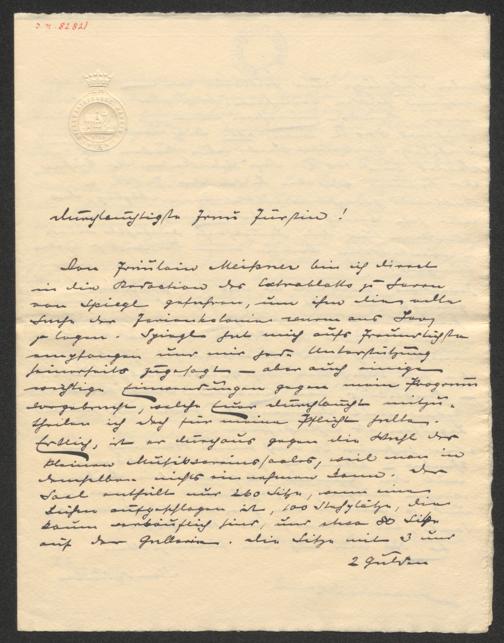 J. N. 82821
Durchlauchtigste Frau Fürstin!
Von Fräulein Meißner bin ich direct
in die Redaction des Extrablatts zu Herrn
von Spiegl gefahren, um ihm die edle
Sache der Feriencolonie warm ans Herz
zu legen. Spiegl hat mich aufs Freundlichste
empfangen und mir jede Unterstützung
seinerseits zugesagt – aber auch einige
wichtige Einwendungen gegen mein Programm
vorgebracht, welche Euer Durchlaucht mitzu-
theilen ich doch für meine Pflicht halte.
Erstlich, ist er durchaus gegen die Wahl des
kleinen Musikvereinssaales, weil man in
demselben nichts einnehmen kann. Der
Saal enthält nur 260 Sitze, wenn eine
aufgeschlagen ist, 100 Stehplätze, die
kaum verkäuflich sind, und etwa 80 Sitze
auf der Gallerie. Die Sitze mit 3 und
2 Gulden